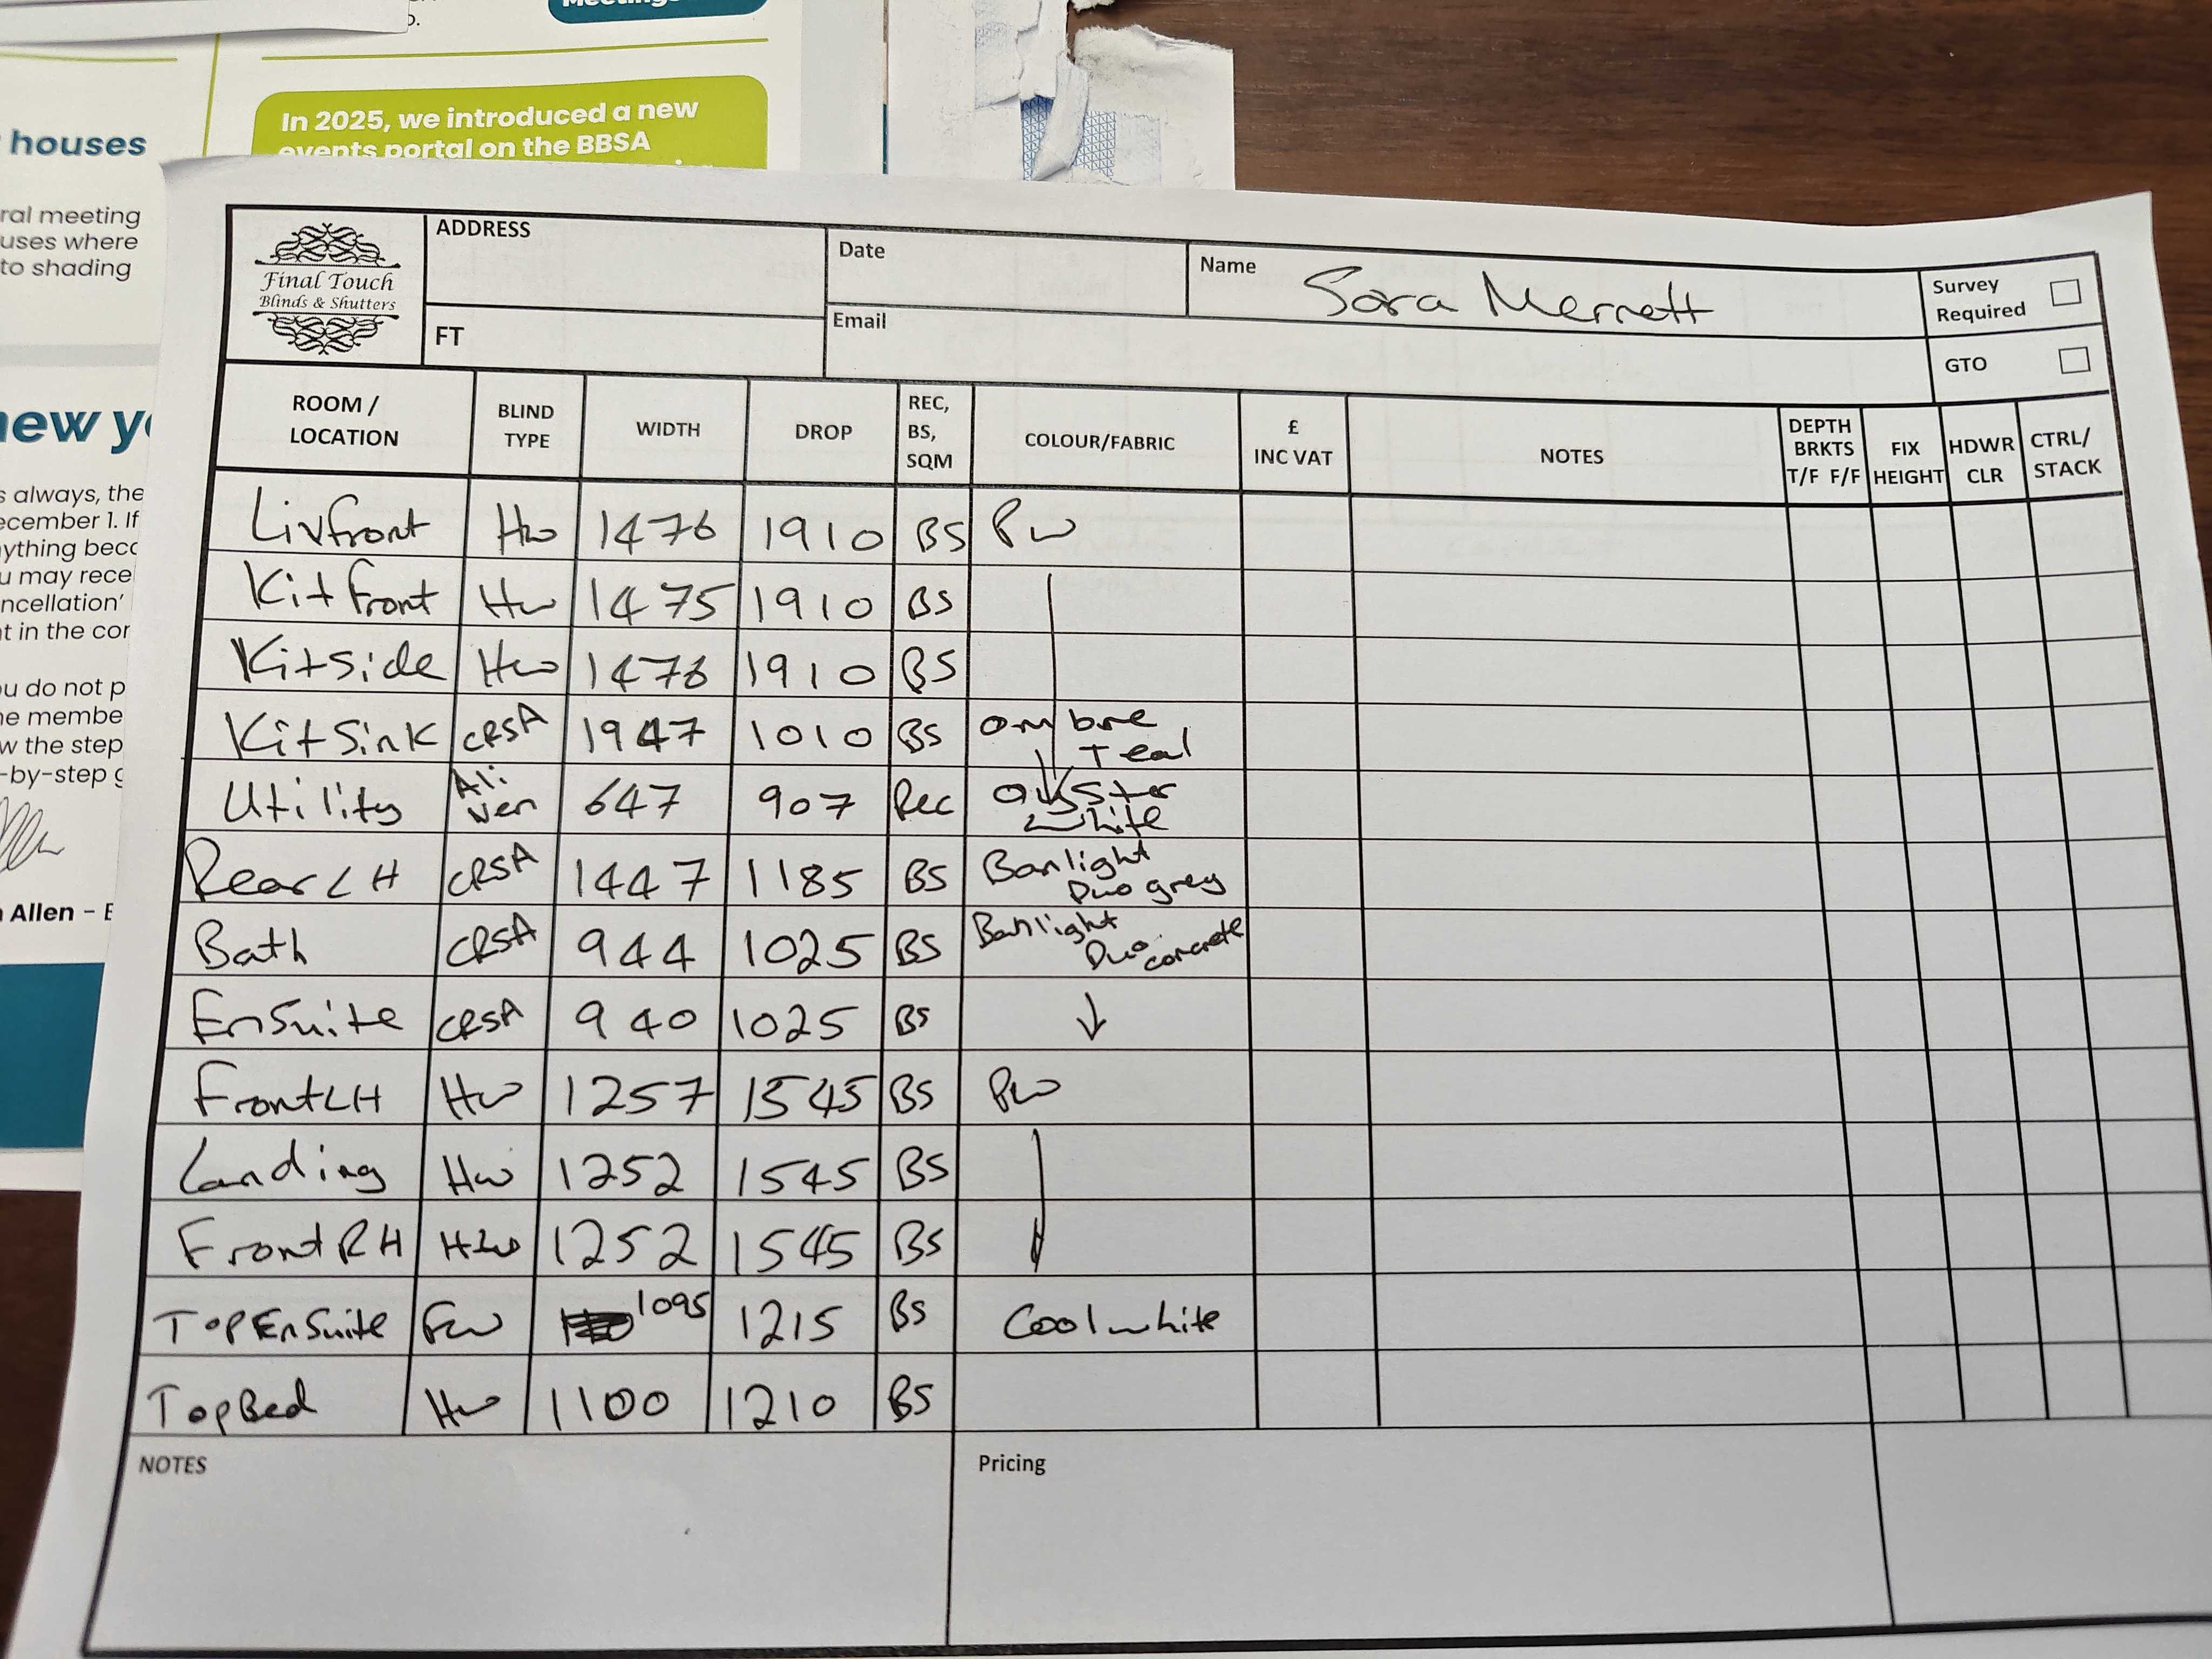 Meetings
In 2025, we introduced a new
events portal on the BBSA
houses
ral meeting
uses where
to shading
new y
s always, the
ecember 1. If
ything bec
u may rece
ncellation'
t in the cor
ou do not p
ne membe
w the step
-by-step g
Allen – E
Final Touch
Blinds & Shutters
ADDRESS
FT
Date
Email
Name Sara Merrett
Survey
Required
GTO
ROOM / LOCATION BLIND TYPE WIDTH DROP REC, BS, SQM COLOUR/FABRIC £ INC VAT NOTES DEPTH BRKTS T/F F/F FIX HEIGHT HDWR CLR CTRL/ STACK
Livfront Hw 1476 1910 BS PW
Kitfront Hw 1475 1910 BS
Kitside Hw 1476 1910 BS
Kitsink CRSA 1947 1010 BS Ombre Teal
Utility Ali Ven 647 907 Rec Oyster White
Rear LH CRSA 1447 1185 BS Banlight Duo grey
Bath CRSA 944 1025 BS Banlight Duo concrete
Ensuite CRSA 940 1025 BS ↓
Front LH Hw 1257 1545 BS PW
Landing Hw 1252 1545 BS
Front RH Hw 1252 1545 BS
Top Ensuite Fw 1095 1215 BS Coolwhite
Top Bed Hw 1100 1210 BS
NOTES
Pricing